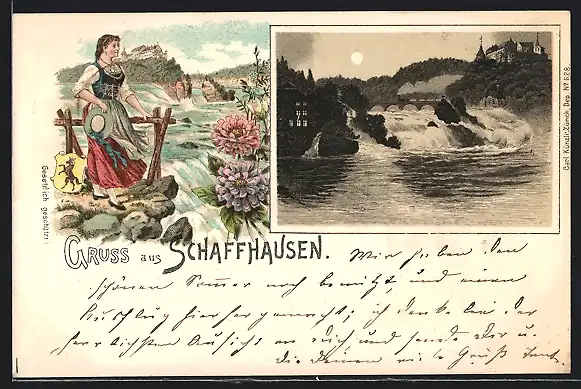 Gesetzlich geschützt!
Carl Künzli, Zürich. Dep. Nº 628.
Gruss aus Schaffhausen.
Wir haben den
schönen Sommer noch benützt und einen
Ausflug hierher gemacht; ich denke bei der
herrlichsten Aussicht an dich und sende dir u.
die Deinen viele Grüße